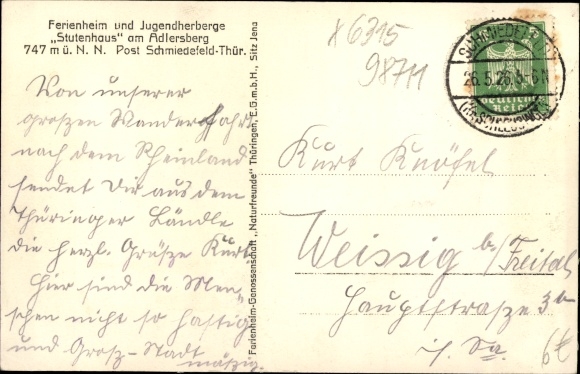 Ferienheim und Jugendherberge
„Stutenhaus" am Adlersberg
747 m ü. N. N. Post Schmiedefeld-Thür.
Von unserer
groszen Wanderfahrt
nach dem Rheinland
sendet Dir aus dem
Thüringer Ländle
die herzl. Grüsze Kurt.
Hier sind die Men-
schen nicht so hastig
und Grosz-Stadt
mäszig.
Ferienheim-Genossenschaft „Naturfreunde" Thüringen, E.G.m.b.H., Sitz Jena
x 6315
98711
26.5.26.5-6N
Deutsches
Reich
Kurt Knöfel
Weissig b/Freital
Hauptstrasze 3b
i/ Sa.
6€